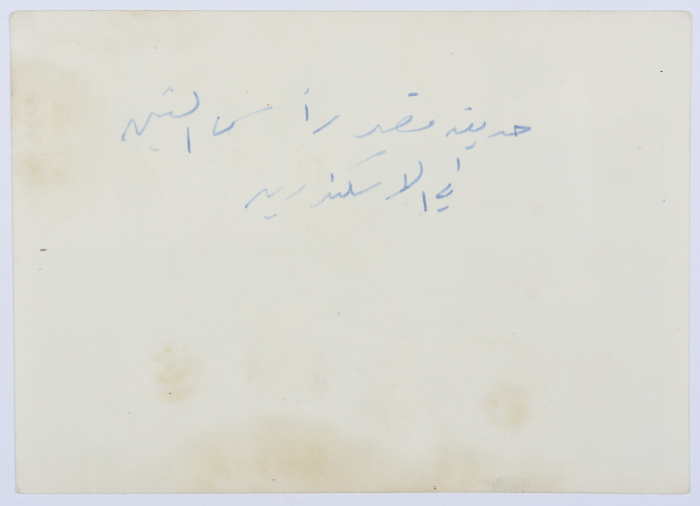 حديقة قصر رأس التين
في الاسكندرية